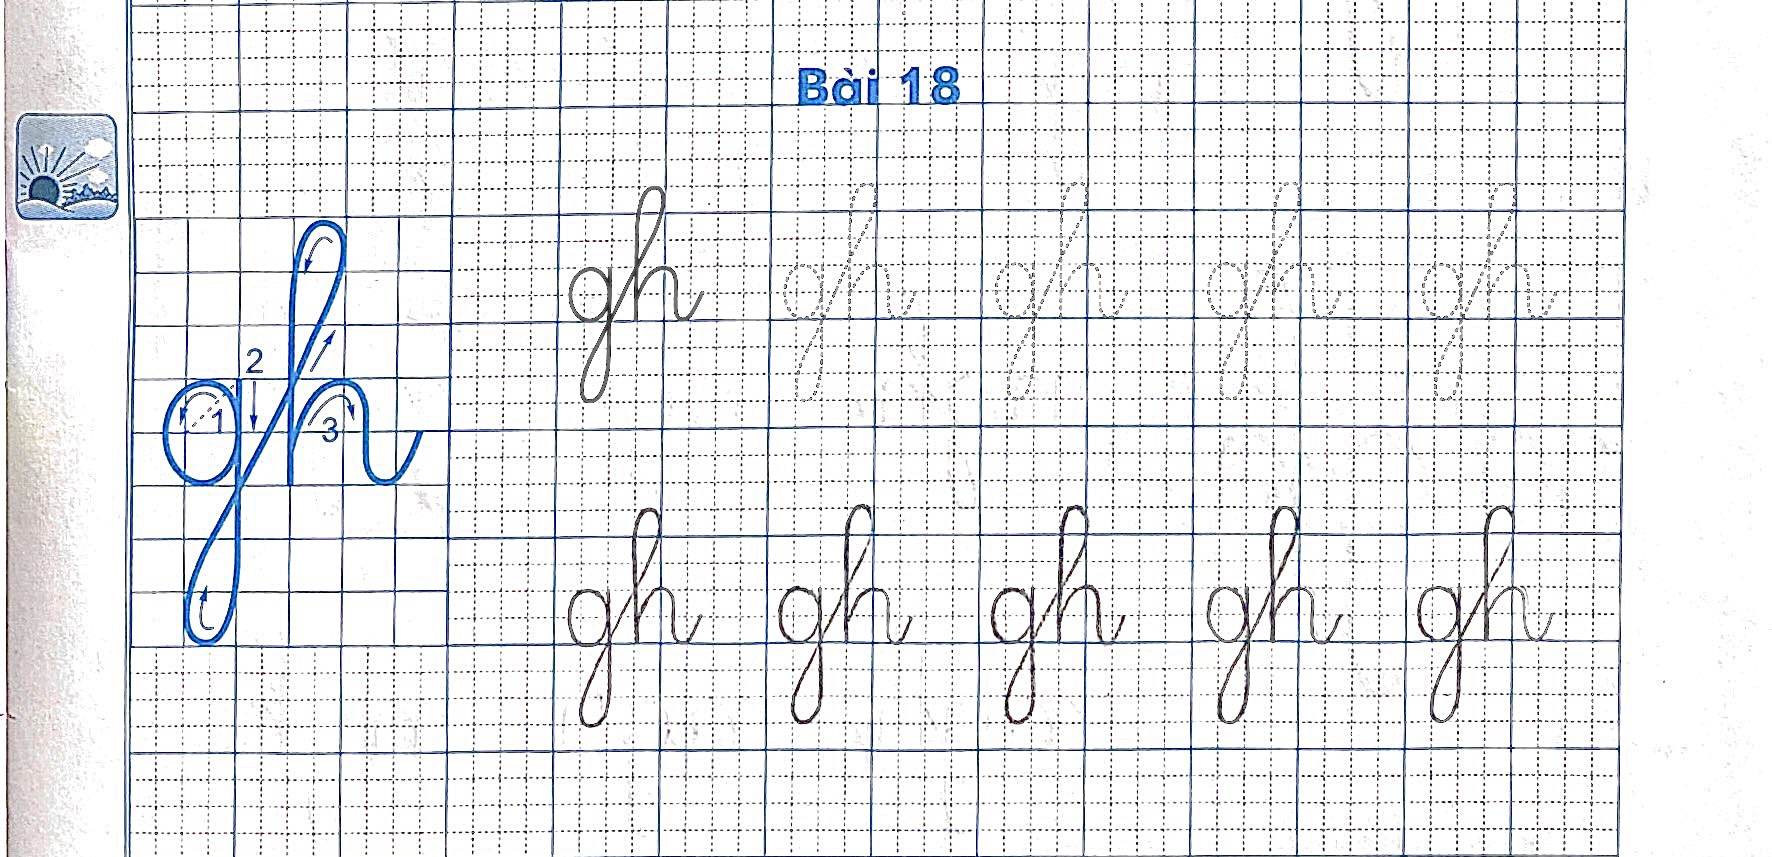 Bài 18
gh gh gh gh gh
gh 1 2 3
gh gh gh gh gh